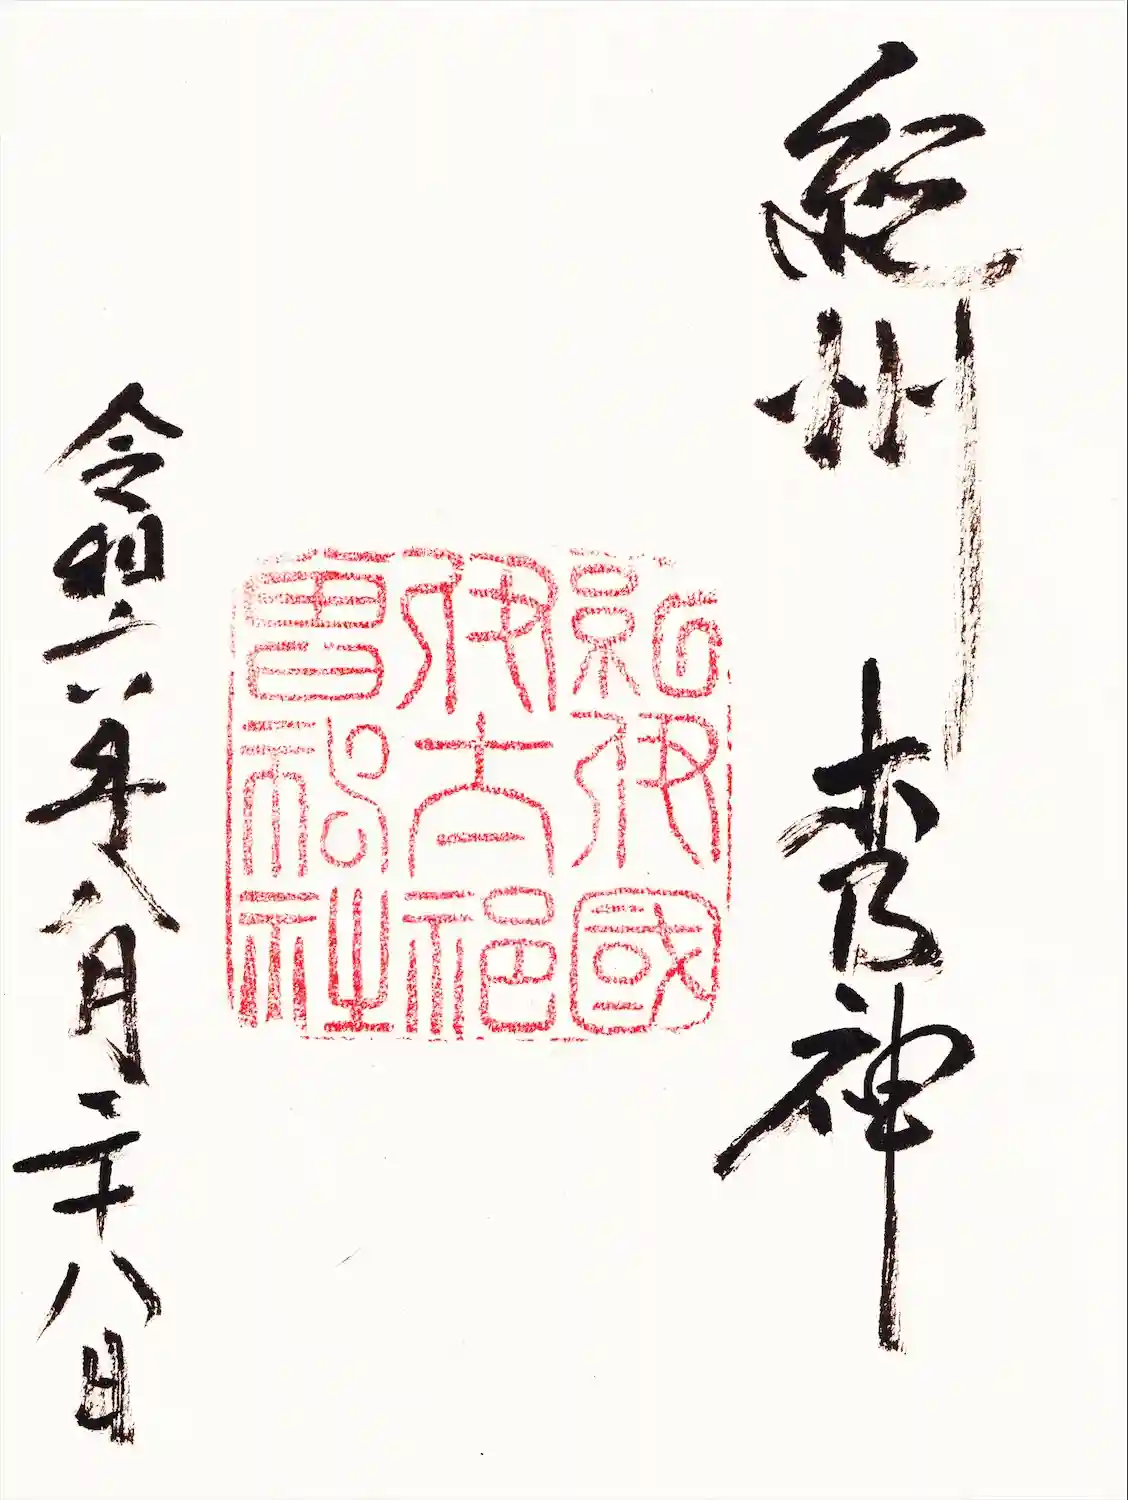 紀州 木乃神
紀伊國
伊太祁
曽神社
令和六年八月二十八日